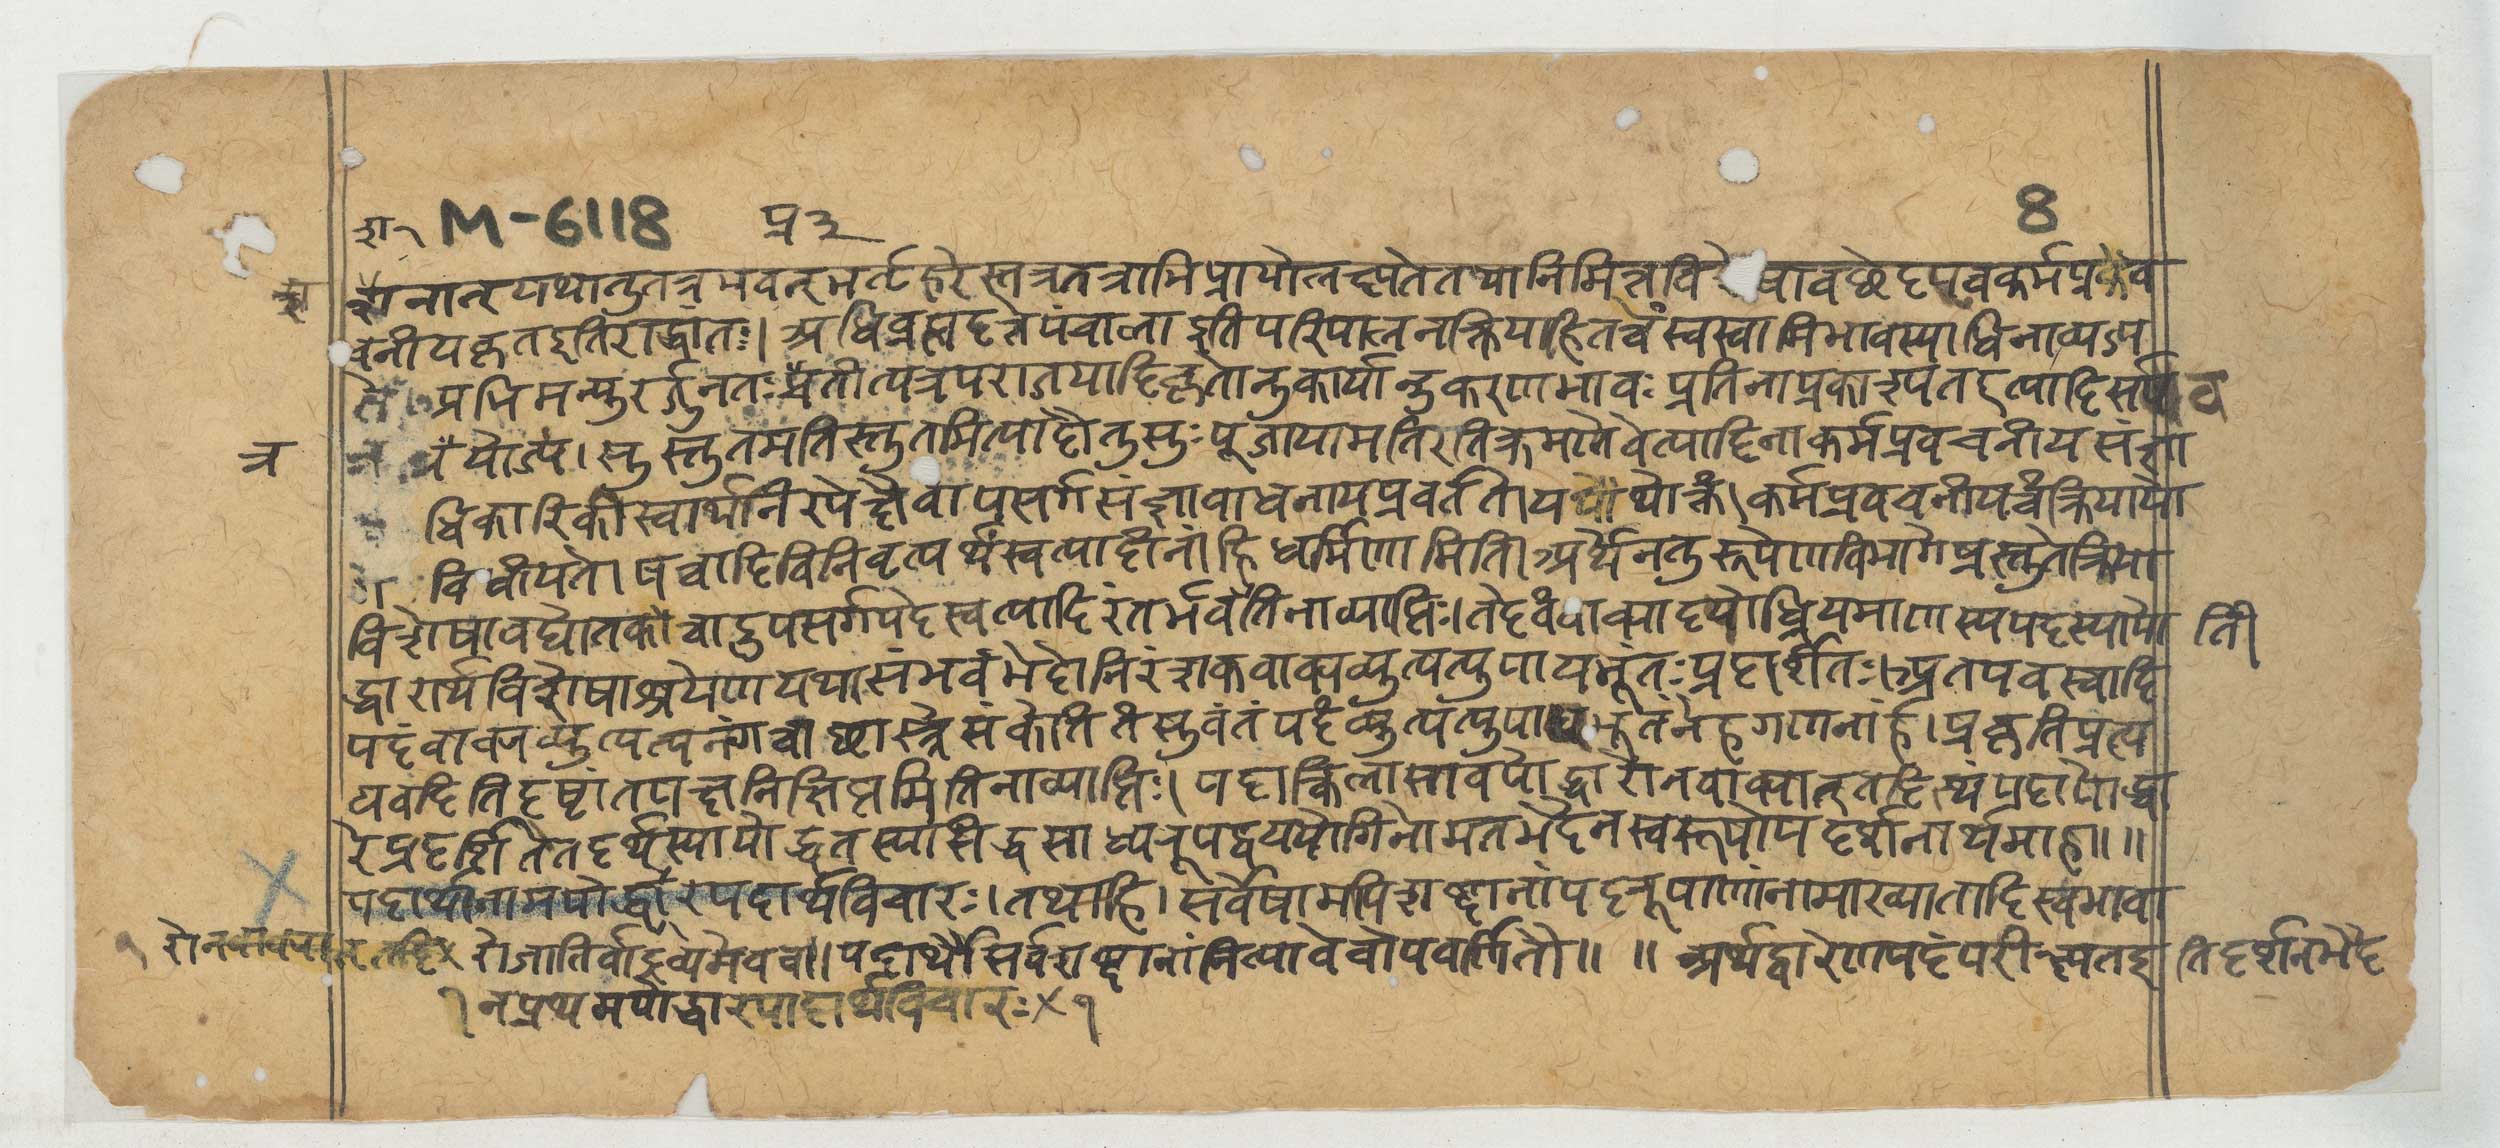 ज्ञा १ M-6118 प्र ३ 8
ज्ञानात् यथा तु तत्रभवत् भर्तृहरेस्तत्र तत्राभिप्रायो लक्ष्यते तथा निमित्तवि षावच्छेद एव कर्मप्रव
चनीयकृत इति राद्धांतः। अधिब्रह्मदत्ते पंचाला इति परिपालनक्रियाहितत्वं स्वस्वामिभावस्याधिनाव्यज्य
ते। अभिमन्युरर्जुनतः प्रतीत्यत्र पराजयादिकृतानुकार्यानुकरणभावः प्रतिना प्रकाश्यत इत्यादि सर्व व
त्र योज्यं। सु स्तुतमतिस्तुतमित्यादौ तु सुः पूजायामतिरतिक्रमणे चेत्यादिना कर्मप्रवचनीयसंज्ञा
धिकारिकी स्वार्थानिरपेक्षैवोपसर्गसंज्ञाबाधनाय प्रवर्तते। यथोक्तं। कर्मप्रवचनीयत्वं क्रियायोगे
विधीयते। षत्वादिविनिवृत्त्यर्थं स्वत्यादीनां हि धर्मिणामिति। अर्थेन तु रूपेण विभागे प्रस्तुतक्रिया
विशेषावद्योतकत्वादुपसर्गपदे स्वत्यादिरंतर्भवतिनाव्याप्तिः। तदेवं वाक्यादपोध्रियमाणस्य पदस्यापो ति।
द्धारार्थविशेषाश्रयेण यथासंभवं भेदो निरंशकवाक्यव्युत्पत्युपायभूतः प्रदर्शितः। अत एव स्वादि
पदं वाक्यव्युत्पत्यनंगत्वाच्छास्त्रसंकेतितं सुबंतं पदव्युत्पत्युपायभूतं नेह गणनार्हं। प्रकृतिप्रत्य
यवदिति दृष्टांतपक्षनिक्षिप्तमिति नाव्याप्तिः। पदा किलासावपोद्धारेन वाक्यात् तदित्थं पदापोद्धा
रे प्रदर्शिते तदर्थस्यापोद्धृतस्य सिद्धसाध्यरूपद्वययोगिनो मतभेदेन स्वरूपोपदर्शनार्थमाह॥॥
पदार्थानामपोद्धारे पदार्थविचारः। तथाहि। सर्वेषामपि शब्दानां पदरूपाणां नामाख्यातादिस्वभावा
रोनवाक्यात् तदि रो जातिर्वा द्रव्यमेव वा॥ पदार्थौ सर्वशब्दानां नित्यावेवोपवर्णितौ॥ ॥ अर्थद्वारेण पदं परीक्ष्यत इति दर्शनभेदे
न प्रथममपोद्धारपदार्थविचारः × १